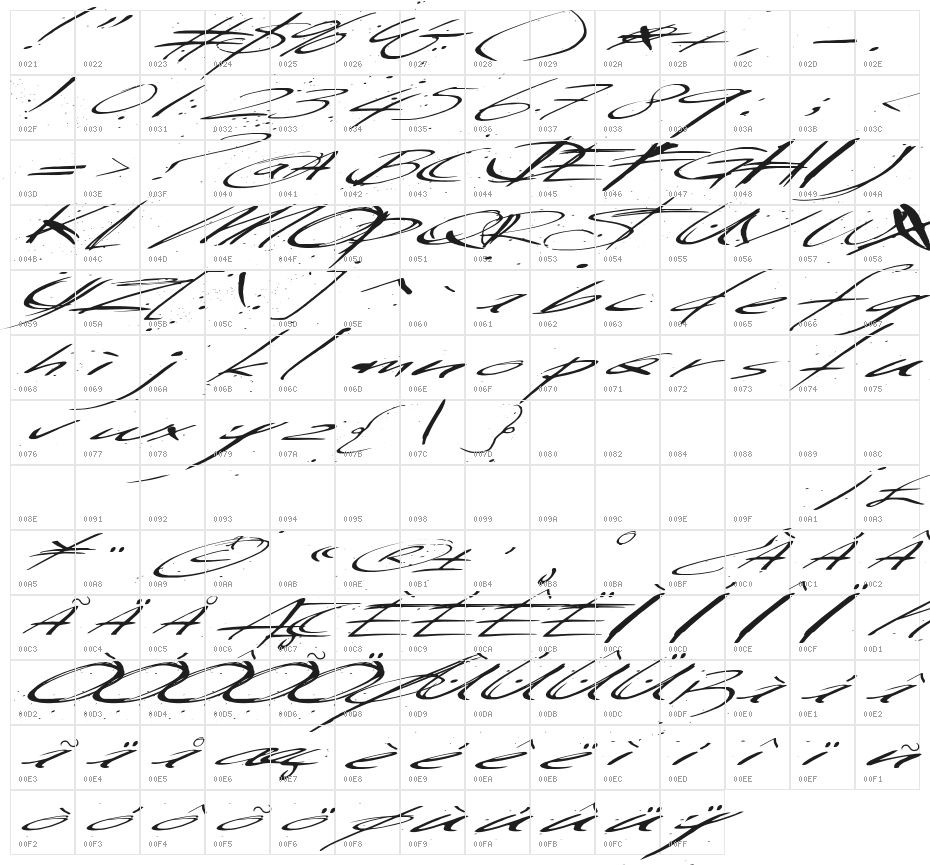 ! " # $ % & ' ( ) * + , - .
0021 0022 0023 0024 0025 0026 0027 0028 0029 002A 002B 002C 002D 002E
/ 0 1 2 3 4 5 6 7 8 9 : ; <
002F 0030 0031 0032 0033 0034 0035 0036 0037 0038 0039 003A 003B 003C
= > ? @ A B C D E F G H I J
003D 003E 003F 0040 0041 0042 0043 0044 0045 0046 0047 0048 0049 004A
K L M N O P Q R S T U V W X
004B 004C 004D 004E 004F 0050 0051 0052 0053 0054 0055 0056 0057 0058
Y Z [ \ ] ^ ` a b c d e f g
0059 005A 005B 005C 005D 005E 0060 0061 0062 0063 0064 0065 0066 0067
h i j k l m n o p q r s t u
0068 0069 006A 006B 006C 006D 006E 006F 0070 0071 0072 0073 0074 0075
v w x y z { | }
0076 0077 0078 0079 007A 007B 007C 007D 0080 0082 0084 0088 0089 008C
¡ £
008E 0091 0092 0093 0094 0095 0098 0099 009A 009C 009E 009F 00A1 00A3
¥ ¨ © « ® ± ´ ¸ º ¿ À Á Â
00A5 00A8 00A9 00AA 00AB 00AE 00B1 00B4 00B8 00BA 00BF 00C0 00C1 00C2
Ã Ä Å Æ Ç È É Ê Ë Ì Í Î Ï Ñ
00C3 00C4 00C5 00C6 00C7 00C8 00C9 00CA 00CB 00CC 00CD 00CE 00CF 00D1
Ò Ó Ô Õ Ö Ø Ù Ú Û Ü ß à á â
00D2 00D3 00D4 00D5 00D6 00D8 00D9 00DA 00DB 00DC 00DF 00E0 00E1 00E2
ã ä å æ ç è é ê ë ì í î ï ñ
00E3 00E4 00E5 00E6 00E7 00E8 00E9 00EA 00EB 00EC 00ED 00EE 00EF 00F1
ò ó ô õ ö ø ù ú û ü ÿ
00F2 00F3 00F4 00F5 00F6 00F8 00F9 00FA 00FB 00FC 00FF